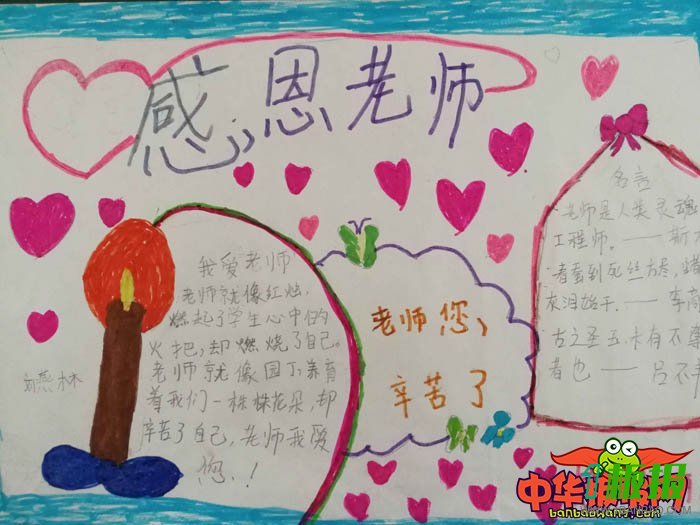 感恩老师
我爱老师
老师就像红烛，
燃起了学生心中的
火把，却燃烧了自己。
老师就像园丁养育
着我们一株株花朵，却
辛苦了自己，老师我爱
您！
刘燕林
老师您，
辛苦了
名言
老师是人类灵魂
工程师。——斯大
春蚕到死丝方尽，蜡
灰泪始干。——李
古之圣王未有不尊
者也——吕不
中华
板报网
banbaowang.com